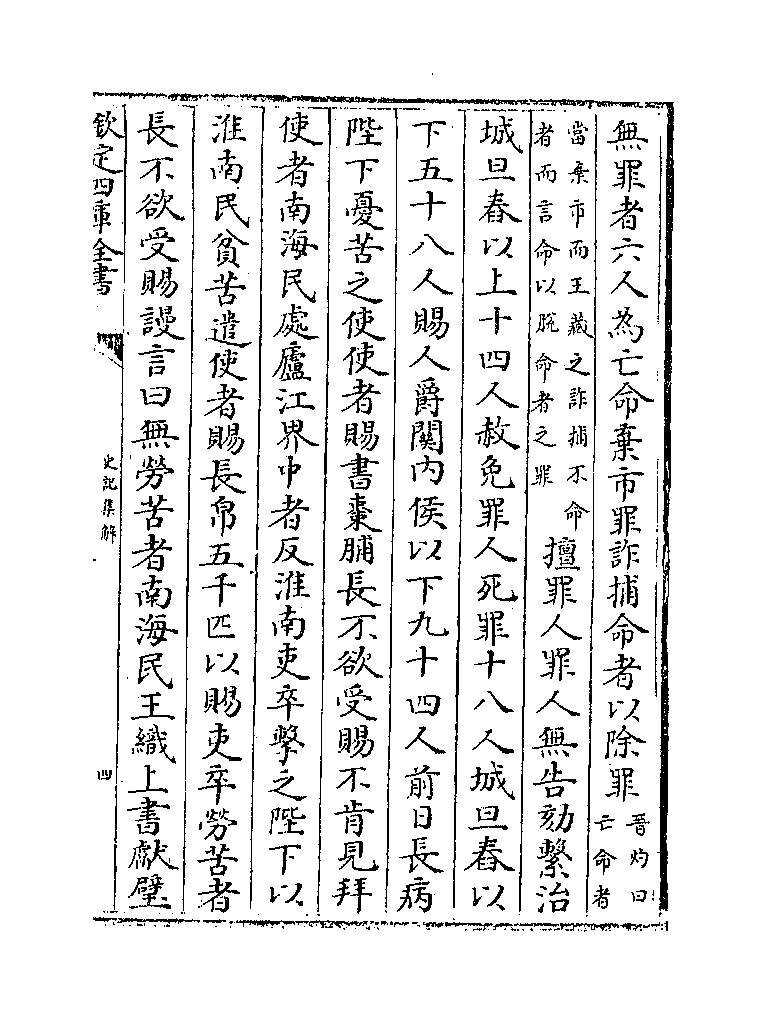 無罪者六人為亡命棄市罪詐捕命者以除罪晋灼曰亡命者
當棄市而王藏之詐捕不命者而言命以脱命者之罪擅罪人罪人無告劾繫治
城旦舂以上十四人赦免罪人死罪十八人城旦舂以
下五十八人賜人爵關内侯以下九十四人前日長病
陛下憂苦之使使者賜書棗脯長不欲受賜不肯見拜
使者南海民處廬江界中者反淮南吏卒擊之陛下以
淮南民貧苦遣使者賜長帛五千匹以賜吏卒勞苦者
長不欲受賜謾言曰無勞苦者南海民王織上書獻璧
欽定四庫全書
史記集解
四